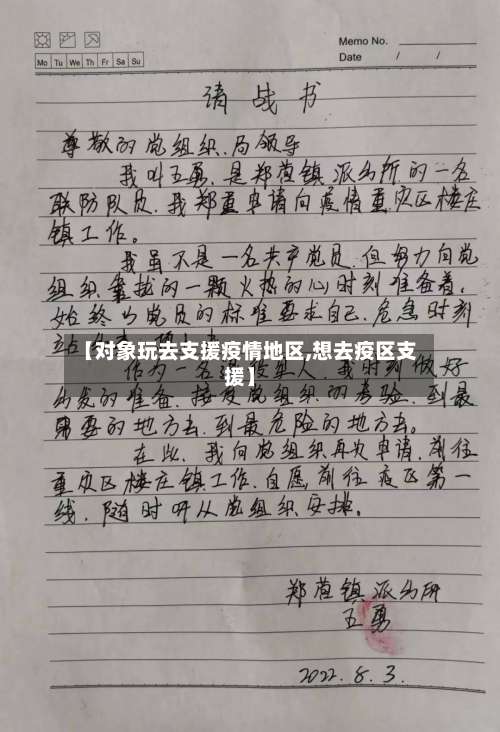 Memo No.
Mo Tu We Th Fr Sa Su
Date / /
请战书
尊敬的党组织、局领导
我叫王勇,是郑营镇派出所的一名
联防队员,我郑重申请向疫情重灾区楼庄
镇工作。
我虽不是一名共产党员,但努力向党
组织靠拢的一颗火热的心时刻准备着,
始终以党员的标准要求自己,危急时刻
站
【对象玩去支援疫情地区,想去疫区支
援】
作为一名 人,我时刻做好
出发的准备,接受党组织的考验,到最
需要的地方去,到最危险的地方去。
在此,我向党组织再次申请,前往
重灾区楼庄镇工作,自愿前往疫区第一
线,随时听从党组织安排。
郑营镇派出所
王勇
2022.8.3.